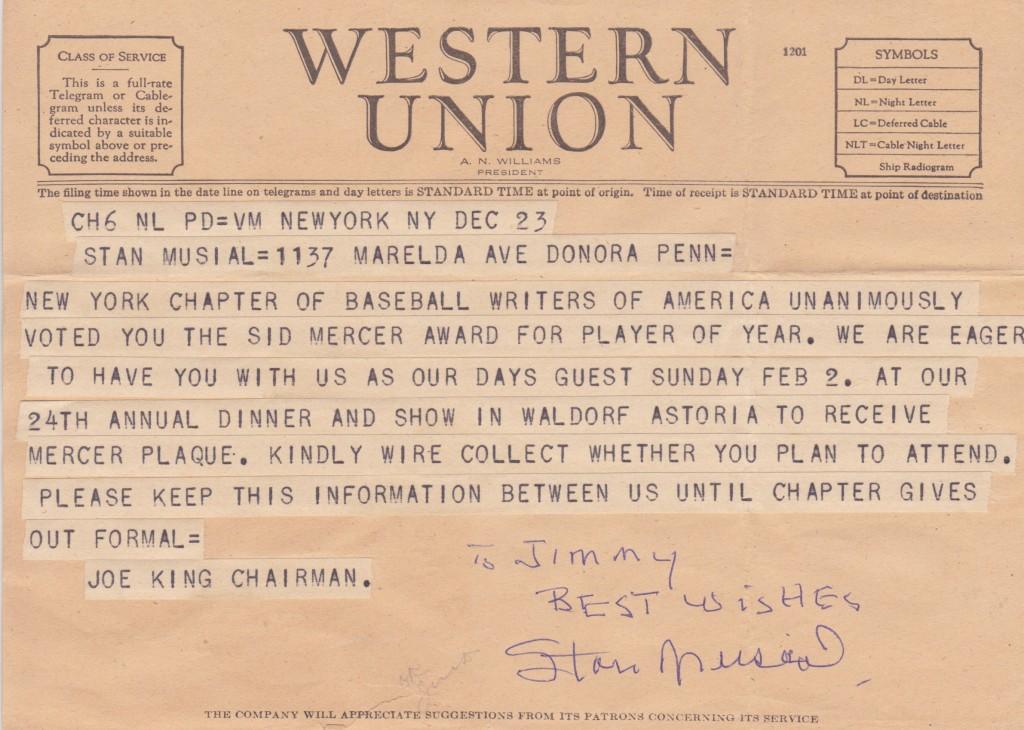 CLASS OF SERVICE
This is a full-rate
Telegram or Cable-
gram unless its de-
ferred character is in-
dicated by a suitable
symbol above or pre-
ceding the address.
WESTERN
UNION
A. N. WILLIAMS
PRESIDENT
1201
SYMBOLS
DL=Day Letter
NL=Night Letter
LC=Deferred Cable
NLT=Cable Night Letter
Ship Radiogram
The filing time shown in the date line on telegrams and day letters is STANDARD TIME at point of origin. Time of receipt is STANDARD TIME at point of destination
CH6 NL PD=VM NEWYORK NY DEC 23
STAN MUSIAL=1137 MARELDA AVE DONORA PENN=
NEW YORK CHAPTER OF BASEBALL WRITERS OF AMERICA UNANIMOUSLY
VOTED YOU THE SID MERCER AWARD FOR PLAYER OF YEAR. WE ARE EAGER
TO HAVE YOU WITH US AS OUR DAYS GUEST SUNDAY FEB 2. AT OUR
24TH ANNUAL DINNER AND SHOW IN WALDORF ASTORIA TO RECEIVE
MERCER PLAQUE. KINDLY WIRE COLLECT WHETHER YOU PLAN TO ATTEND.
PLEASE KEEP THIS INFORMATION BETWEEN US UNTIL CHAPTER GIVES
OUT FORMAL=
JOE KING CHAIRMAN.
To Jimmy
BEST WiSHES
Stan Musial
THE COMPANY WILL APPRECIATE SUGGESTIONS FROM ITS PATRONS CONCERNING ITS SERVICE